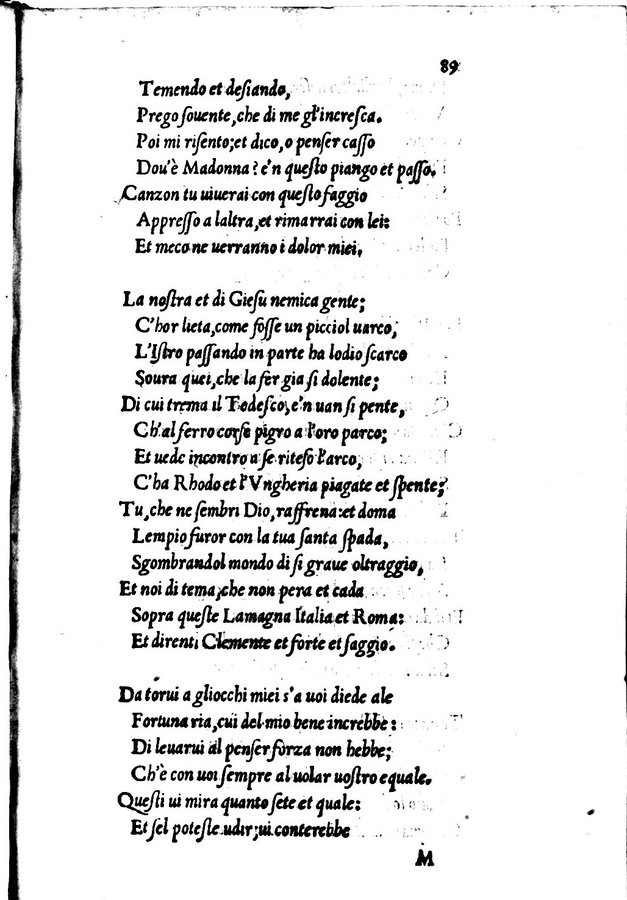 89
Temendo et deſiando,
Prego ſouente, che di me gl'increſca.
Poi mi riſento; et dico, o penſer caſſo
Dou'è Madonna? e'n queſto piango et paſſo.
Canzon tu uiuerai con queſto faggio
Appreſſo a laltra, et rimarrai con lei:
Et meco ne uerranno i dolor miei.

La noſtra et di Gieſu nemica gente;
C'hor lieta, come foſſe un picciol uarco,
L'Iſtro paſſando in parte ha lodio ſcarco
Soura quei, che la fer gia ſi dolente;
Di cui trema il Todeſco, e'n uan ſi pente,
Ch'al ferro corſe pigro a l'oro parco;
Et uede incontro a ſe riteſo l'arco,
C'ha Rhodo et l'Vngheria piagate et ſpente;
Tu, che ne ſembri Dio, raffrena: et doma
Lempio furor con la tua ſanta ſpada,
Sgombrandol mondo di ſi graue oltraggio,
Et noi di tema, che non pera et cada
Sopra queſte Lamagna Italia et Roma:
Et direnti Clemente et forte et ſaggio.

Da torui a gliocchi miei s'a uoi diede ale
Fortuna ria, cui del mio bene increbbe:
Di leuarui al penſer forza non hebbe;
Ch'è con uoi ſempre al uolar uoſtro equale.
Queſti ui mira quanto ſete et quale:
Et ſel poteſte udir; ui conterebbe
M